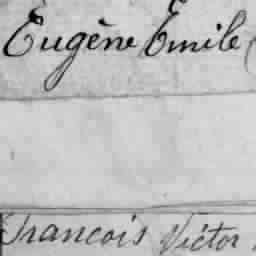 Eugène Emile
Francois Victor